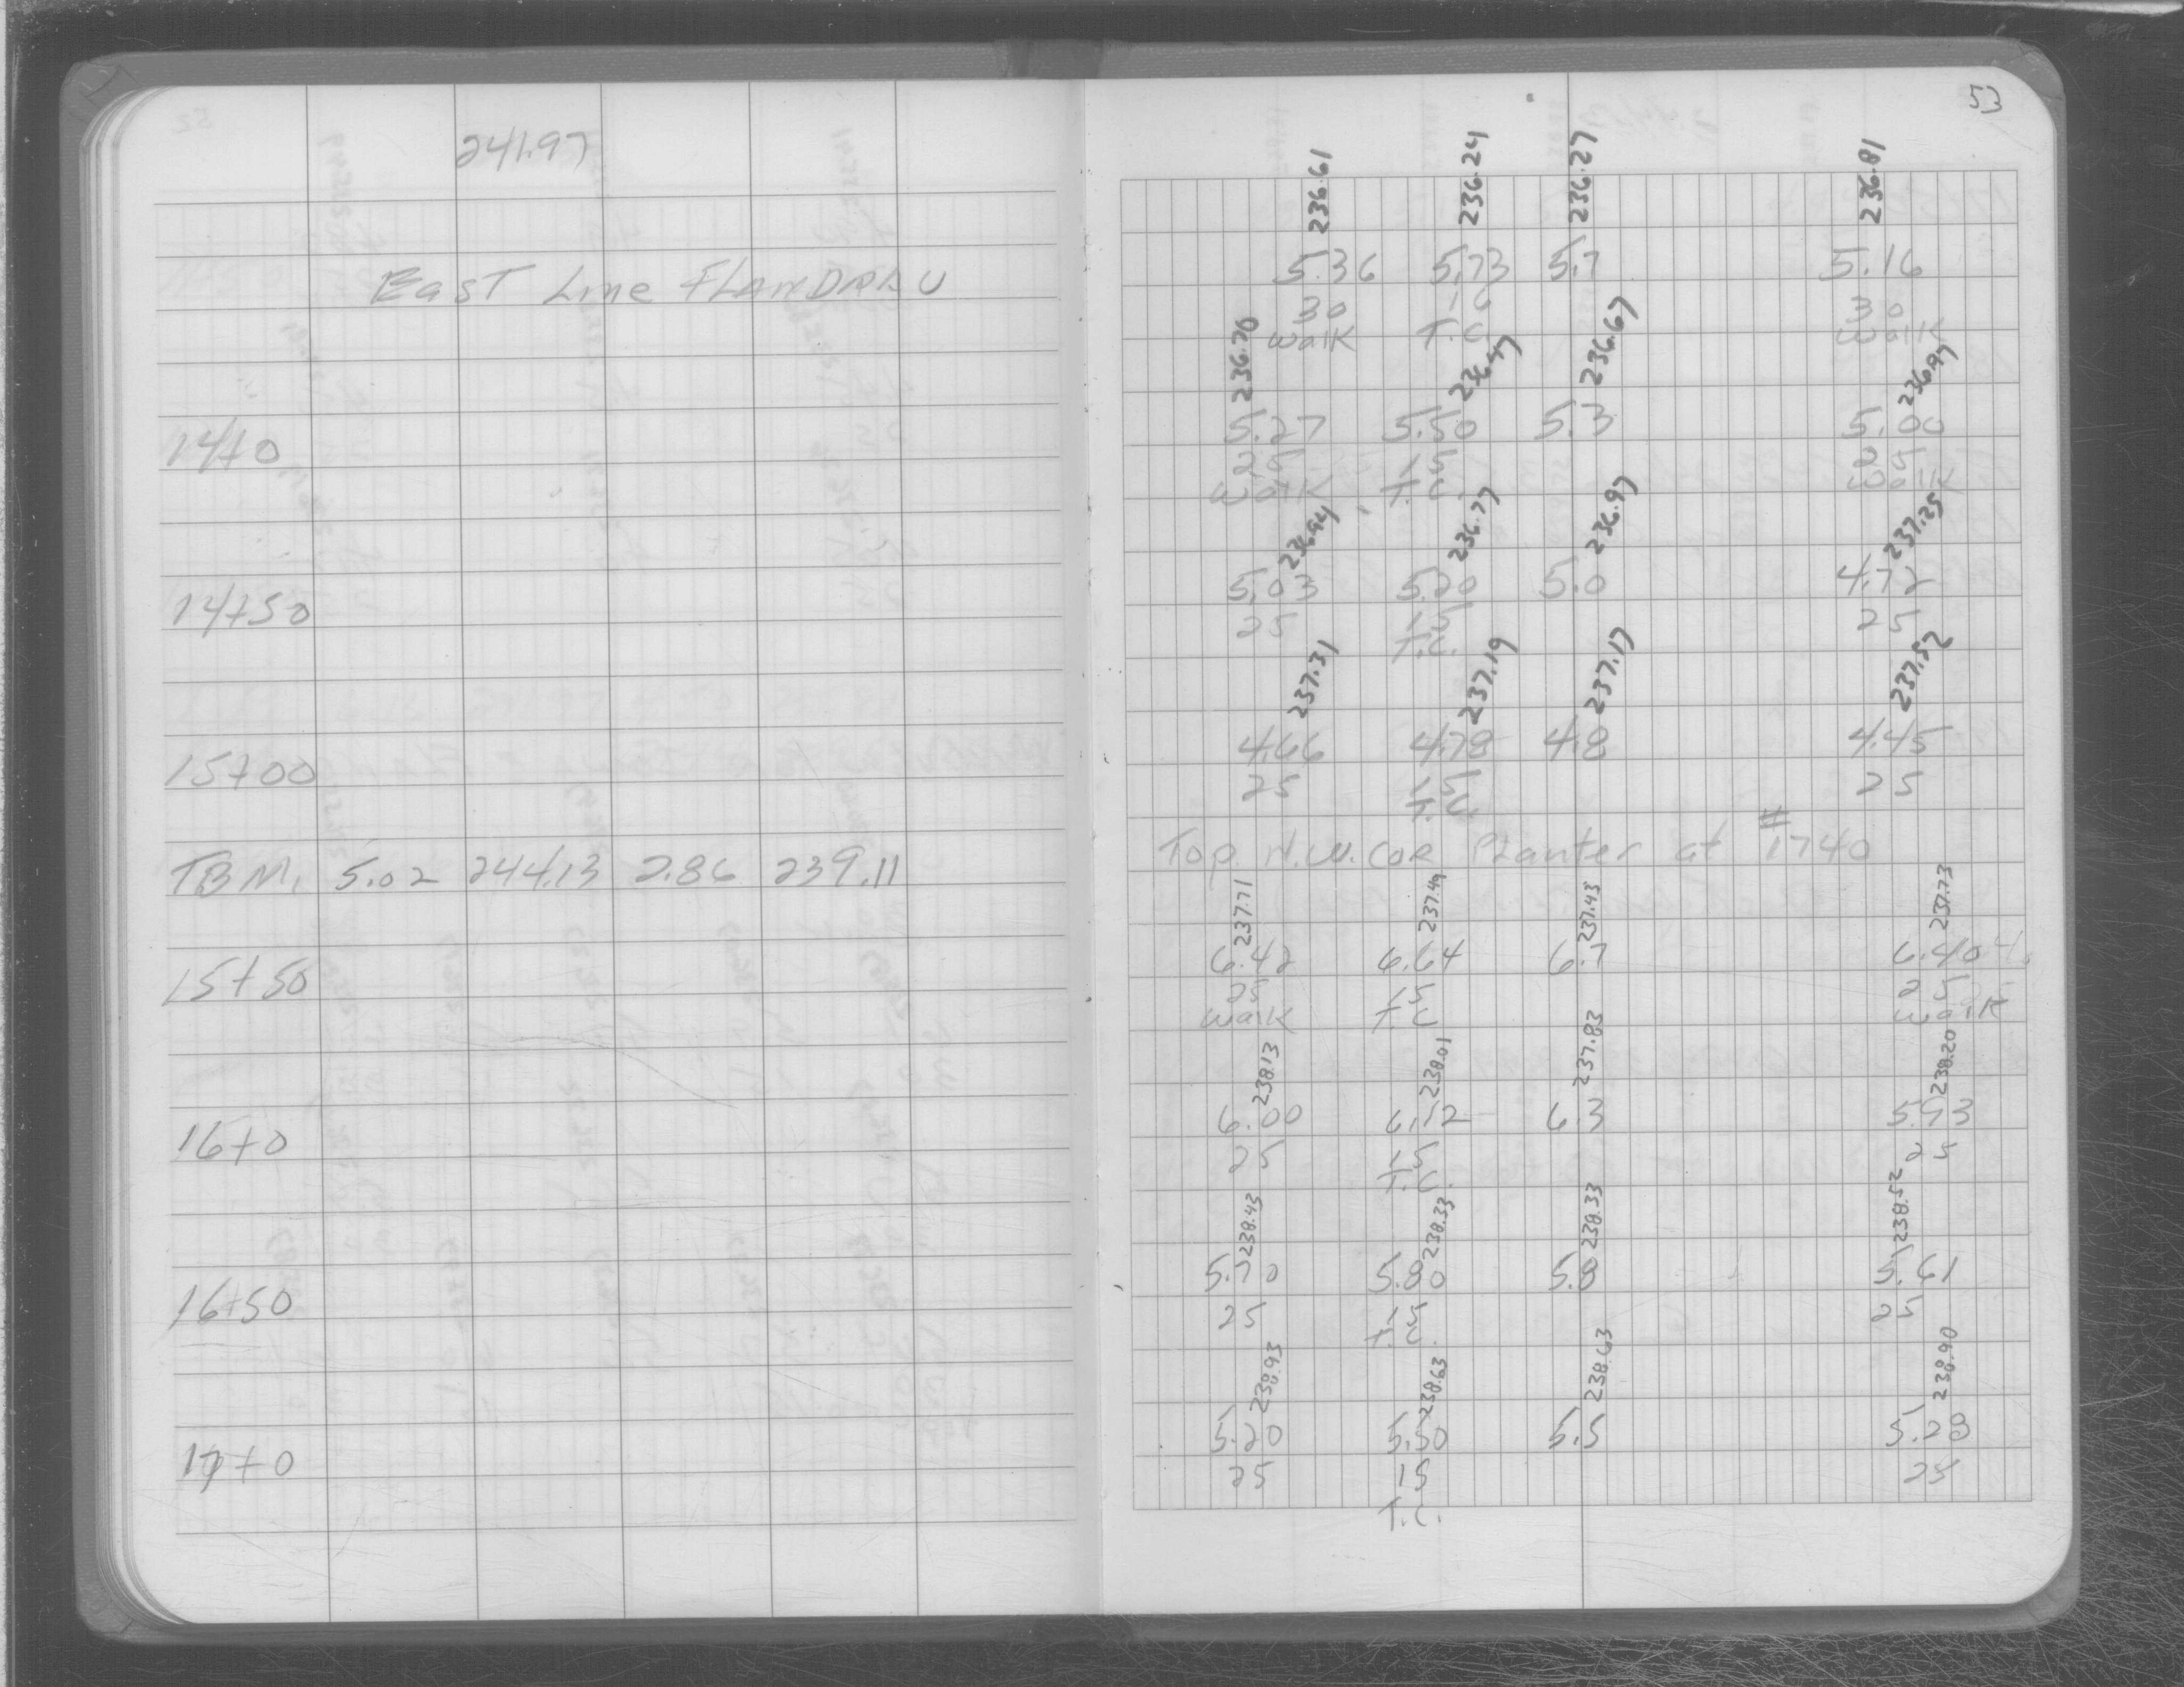 53
241.97
236.61 236.24 236.27 236.81
East Line FLANDRAU 5.36 5.73 5.7 5.16
30 16 30
walk T.C. walk
236.70 236.47 236.67 236.97
14+0 5.27 5.50 5.3 5.00
25 15 25
walk T.C. walk
236.94 236.77 236.97 237.25
14+50 5.03 5.20 5.0 4.72
25 15 25
T.C.
237.31 237.19 237.17 237.52
15+00 4.66 4.78 4.8 4.45
25 15 25
T.C.
T.B.M. 5.02 244.13 2.86 239.11 Top N.W. COR Planter at #1740
237.71 237.49 237.43 237.73
15+50 6.42 6.64 6.7 6.40
25 15 25
walk T.C walk
238.13 238.01 237.83 238.20
16+0 6.00 6.12 6.3 5.93
25 15 25
T.C.
238.43 238.33 238.33 238.52
16+50 5.70 5.80 5.8 5.61
25 15 25
T.C.
238.93 238.63 238.63 238.90
17+0 5.20 5.50 5.5 5.23
25 15 25
T.C.